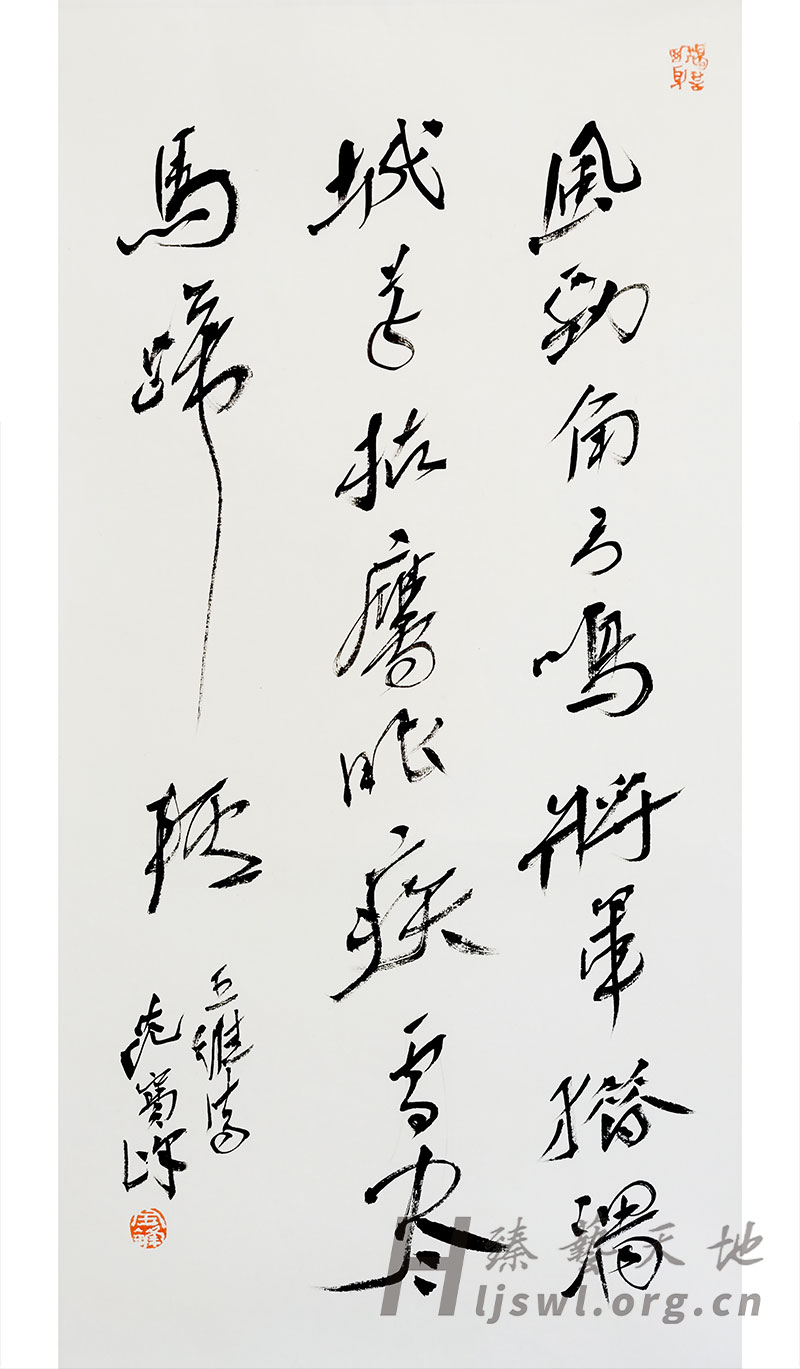 風勁角弓鳴將軍猎渭
城草枯鷹眼疾雪尽
馬蹄輕
王維詩
寶峰
臻藝天地
Hljswl.org.cn